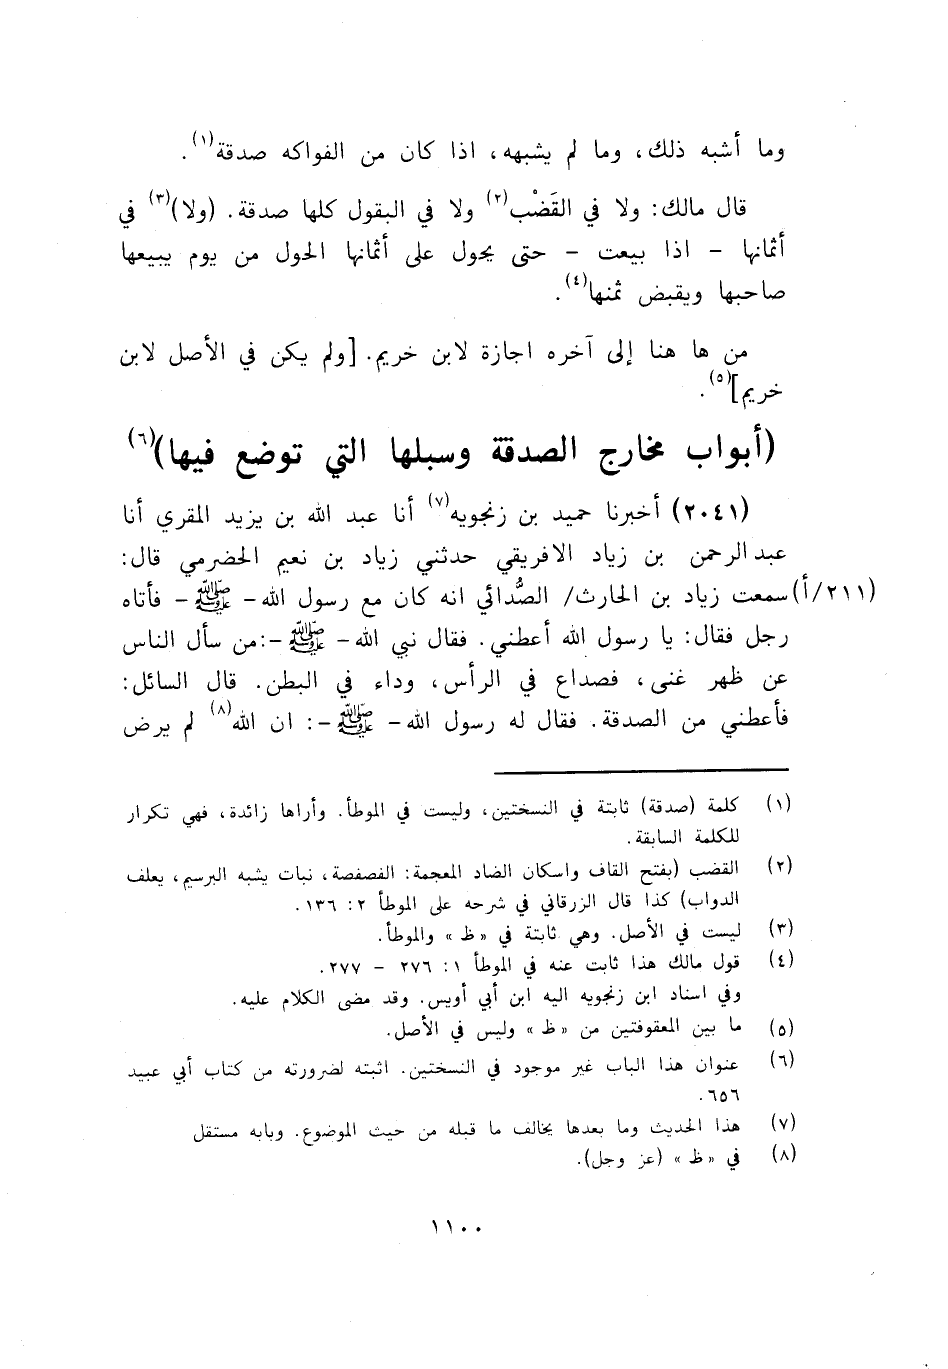 وما أشبه ذلك، وما لم يشبهه، اذا كان من الفواكه صدقة(١).
قال مالك: ولا في القَضْب(٢) ولا في البقول كلها صدقة. (ولا)(٣) في
أثمانها - اذا بيعت - حتى يحول على أثمانها الحول من يوم يبيعها
صاحبها ويقبض ثمنها(٤).
من ها هنا إلى آخره اجازة لابن خريم. [ولم يكن في الأصل لابن
خريم](٥).
(أبواب مخارج الصدقة وسبلها التي توضع فيها)(٦)
(٢٠٤١) أخبرنا حميد بن زنجويه(٧) أنا عبد الله بن يزيد المقري أنا
عبد الرحمن بن زياد الافريقي حدثني زياد بن نعيم الحضرمي قال:
(٢١١/أ) سمعت زياد بن الحارث/ الصُّدائي انه كان مع رسول الله - ﷺ - فأتاه
رجل فقال: يا رسول الله أعطني. فقال نبي الله - ﷺ -: من سأل الناس
عن ظهر غنى، فصداع في الرأس، وداء في البطن. قال السائل:
فأعطني من الصدقة. فقال له رسول الله - ﷺ -: ان الله(٨) لم يرض
(١) كلمة (صدقة) ثابتة في النسختين، وليست في الموطأ. وأراها زائدة، فهي تكرار
للكلمة السابقة.
(٢) القضب (بفتح القاف واسكان الضاد المعجمة: الفصفصة، نبات يشبه البرسيم، يعلف
الدواب) كذا قال الزرقاني في شرحه على الموطأ ٢: ١٣٦.
(٣) ليست في الأصل. وهي ثابتة في «ظ» والموطأ.
(٤) قول مالك هذا ثابت عنه في الموطأ ١: ٢٧٦ - ٢٧٧.
وفي اسناد ابن زنجويه اليه ابن أبي أويس. وقد مضى الكلام عليه.
(٥) ما بين المعقوفتين من «ظ» وليس في الأصل.
(٦) عنوان هذا الباب غير موجود في النسختين. اثبته لضرورته من كتاب أبي عبيد
٦٥٦.
(٧) هذا الحديث وما بعدها يخالف ما قبله من حيث الموضوع. وبابه مستقل
(٨) في «ظ» (عز وجل).
١١٠٠